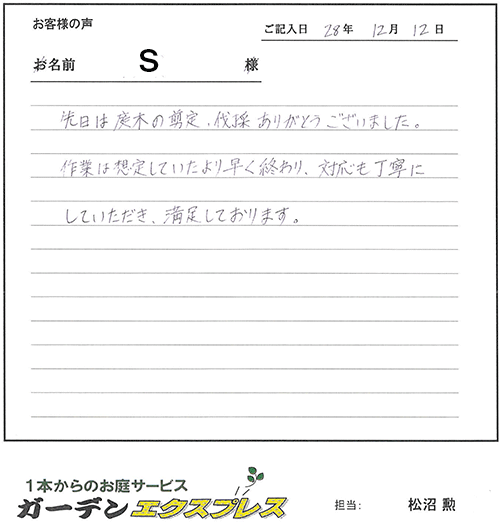 お客様の声
ご記入日 28年 12月 12日
お名前 S 様
先日は庭木の剪定、伐採ありがとうございました。
作業は想定していたより早く終わり、対応も丁寧に
していただき、満足しております。
1本からのお庭サービス
ガーデンエクスプレス
担当: 松沼 勲